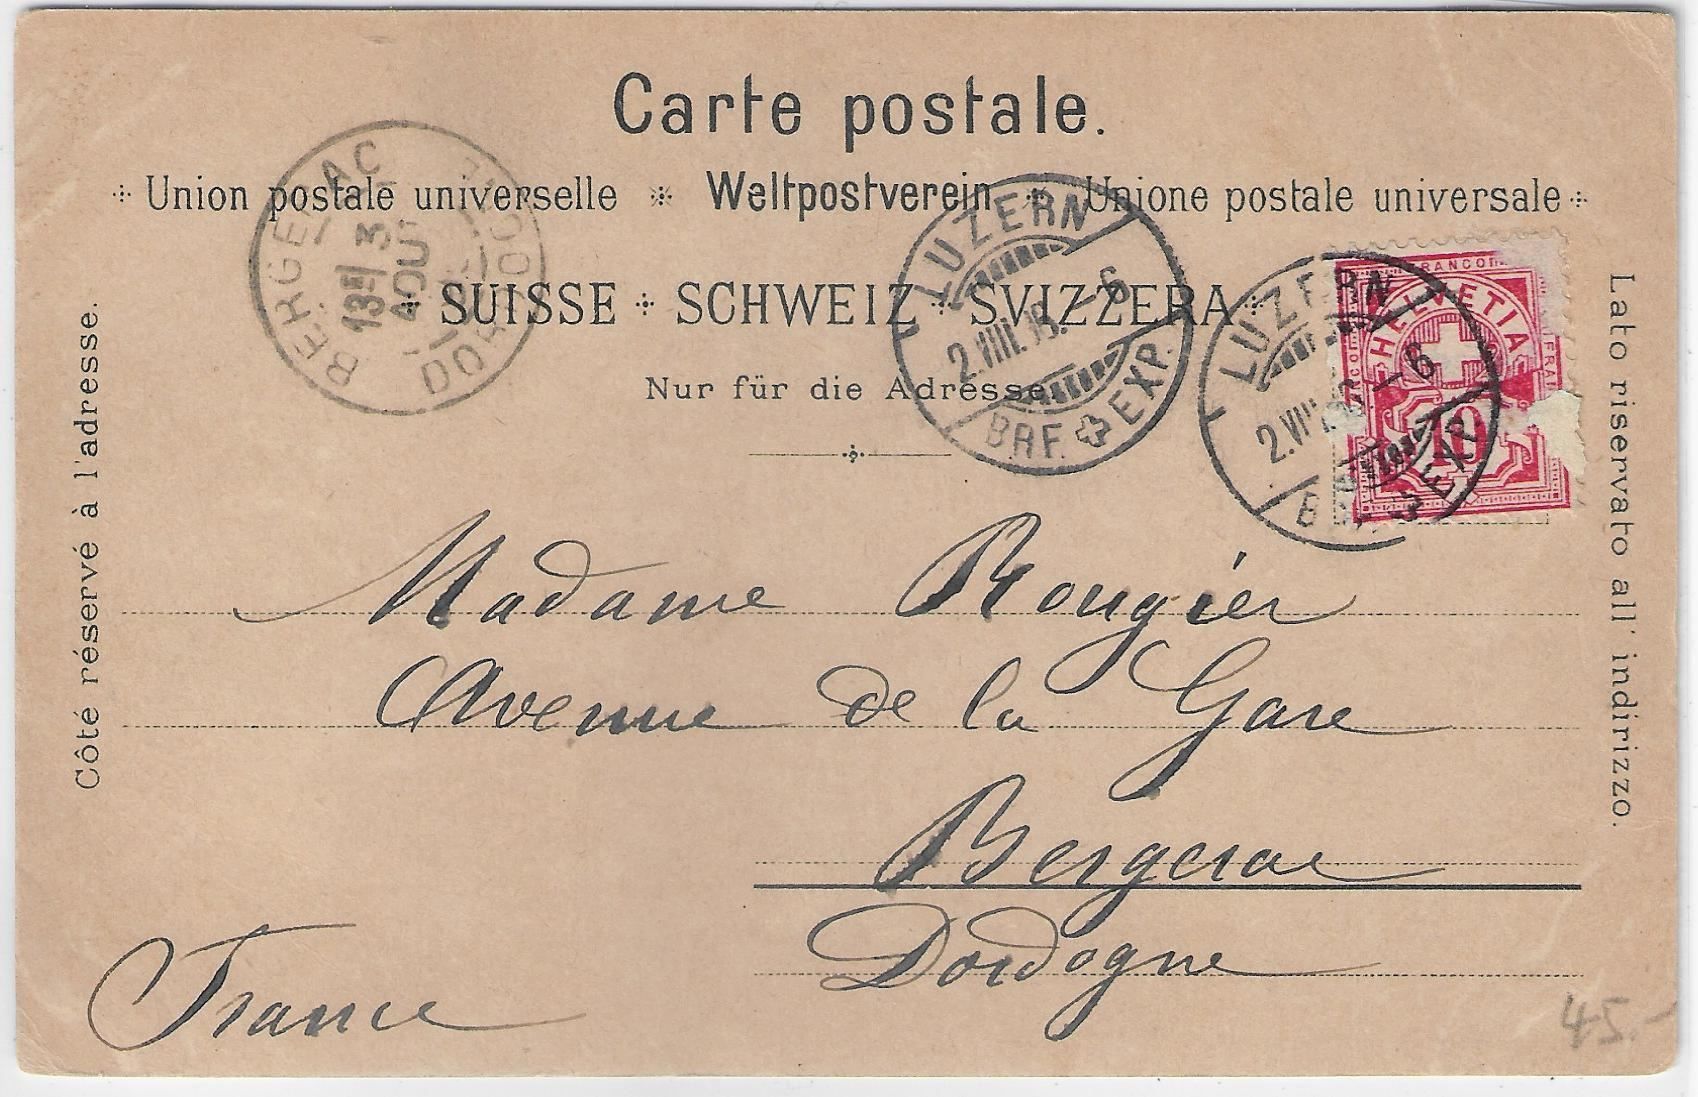 Carte postale.
Union postale universelle Weltpostverein Unione postale universale
SUISSE SCHWEIZ SVIZZERA
Nur für die Adresse
Côté réservé à l'adresse.
Lato riservato all' indirizzo.
BERGERAC
13E 3
AOUT
DORDOGNE
LUZERN
2.VIII. –6
BRF. EXP.
LUZERN
2.VIII. –6
EXP.
FRANCO
HELVETIA
10
Madame Rougier
Avenue de la Gare
Bergerac
Dordogne
France
45.-